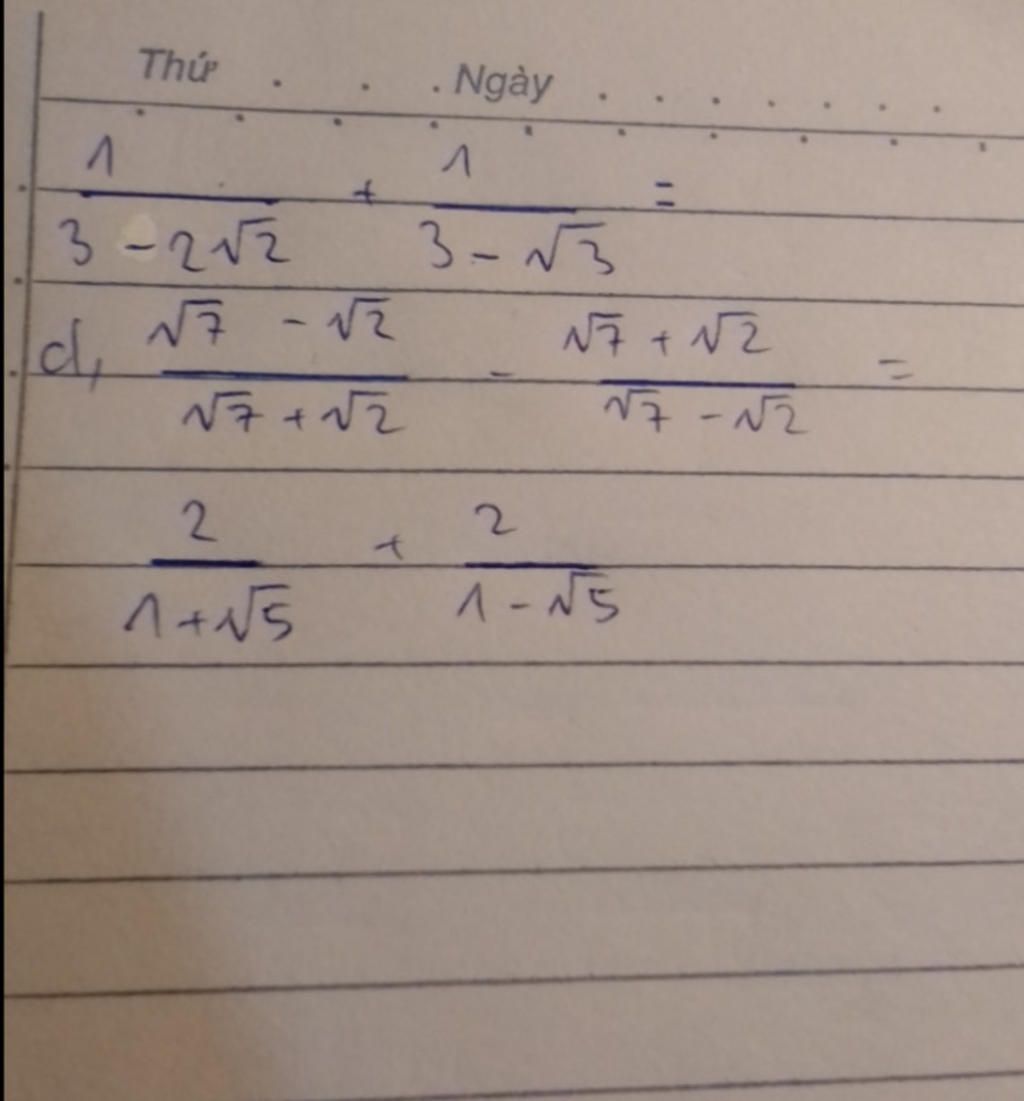 Thứ . . . Ngày . . . . . . .
1/(3 - 2√2) + 1/(3 - √3) =
d, (√7 - √2)/(√7 + √2) - (√7 + √2)/(√7 - √2) =
2/(1 + √5) + 2/(1 - √5)